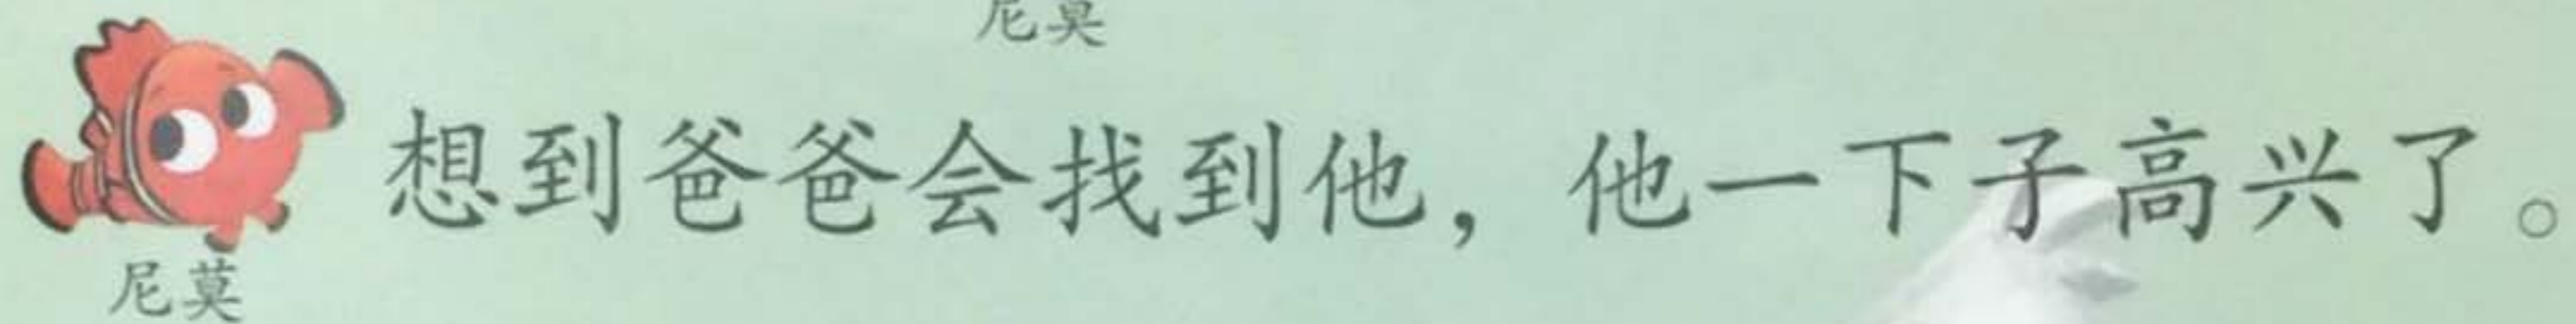 尼莫
想到爸爸会找到他，他一下子高兴了。
尼莫